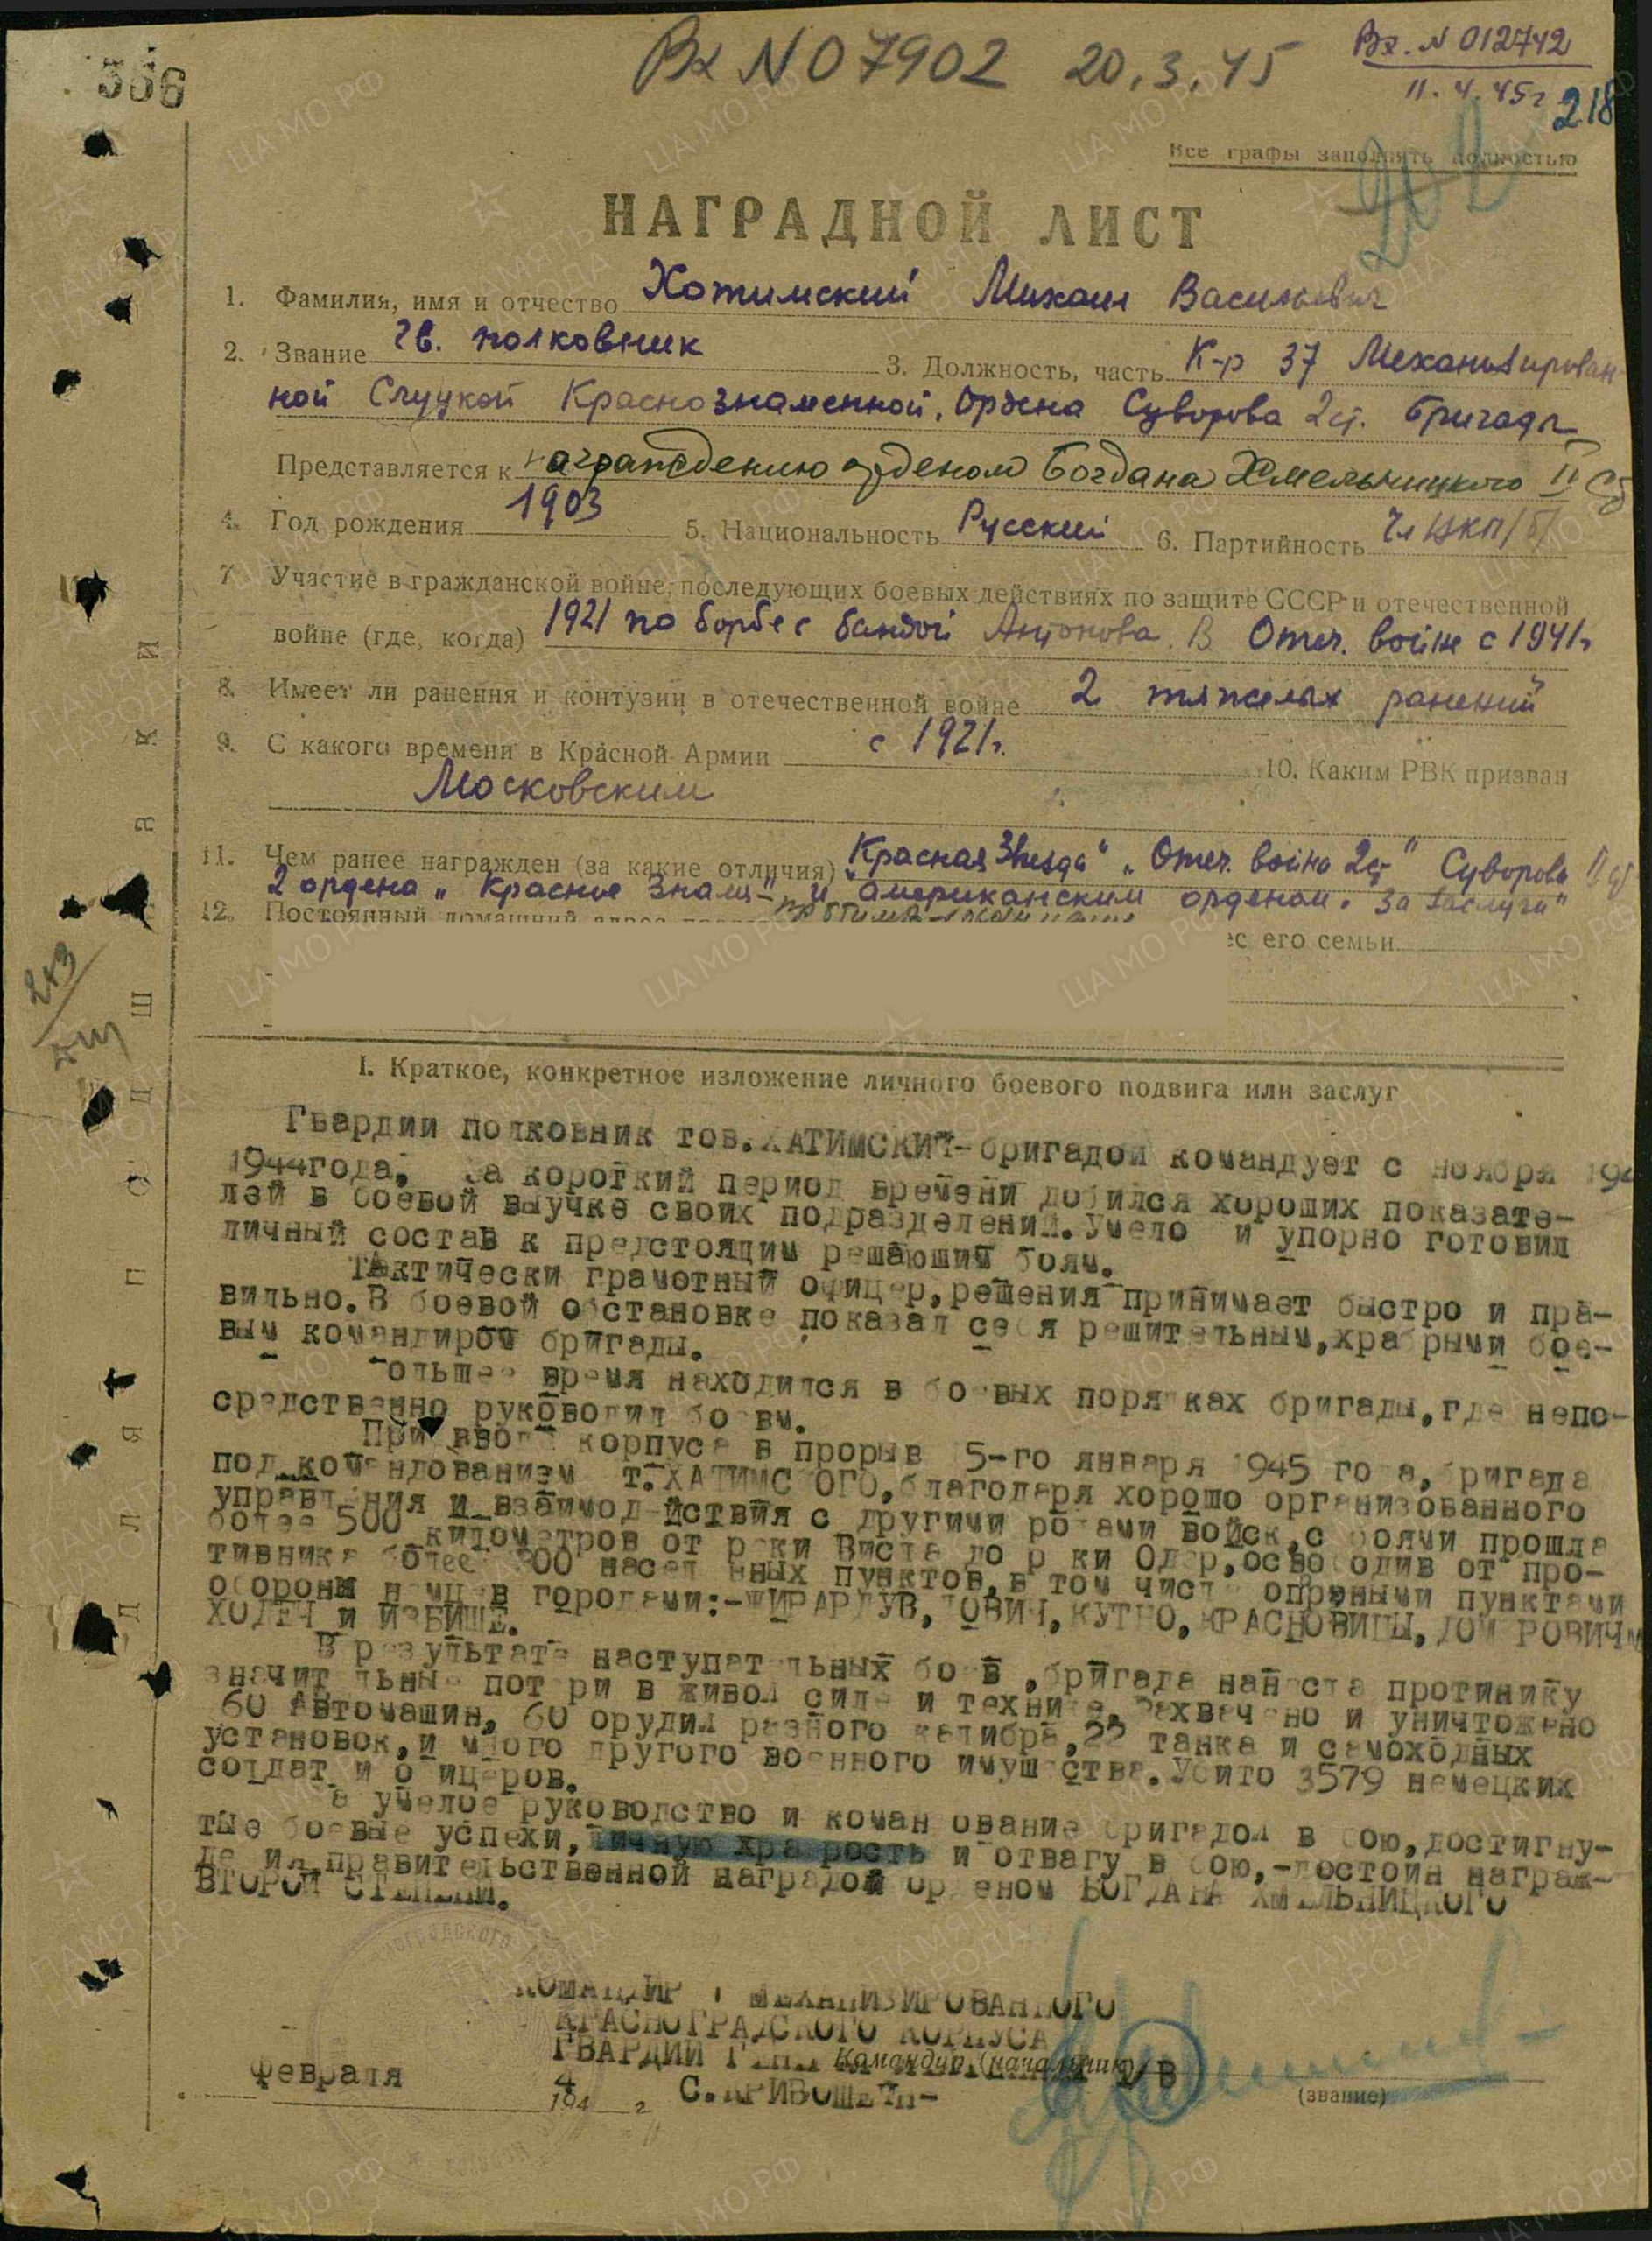 336
Вх N 07902 20.3.45
Вх. N 012742
11.4.45г
218
Все графы заполнять полностью
НАГРАДНОЙ ЛИСТ
1. Фамилия, имя и отчество Хотимский Михаил Васильевич
2. Звание гв. полковник 3. Должность, часть К-р 37 Механизирован
ной Слуцкой Краснознаменной, Ордена Суворова 2 ст. бригады
Представляется к награждению орденом Богдана Хмельницкого II ст
4. Год рождения 1903 5. Национальность Русский 6. Партийность чл ВКП/б/
7. Участие в гражданской войне, последующих боевых действиях по защите СССР и отечественной
войне (где, когда) 1921 по борьбе с бандой Антонова. В Отеч. войне с 1941г
8. Имеет ли ранения и контузии в отечественной войне 2 тяжелых ранений
9. С какого времени в Красной Армии с 1921г. 10. Каким РВК призван
Московским
11. Чем ранее награжден (за какие отличия) "Красная Звезда" "Отеч. война 2ст" Суворова II ст
2 ордена "Красное Знамя" и американским орденом "За заслуги"
12. Постоянный домашний адрес
ес его семьи
I. Краткое, конкретное изложение личного боевого подвига или заслуг
Гвардии полковник тов.ХАТИМСКИЙ-бригадой командует с ноября 194
1944года. За короткий период времени добился хороших показате-
лей в боевой выучке своих подразделений. Умело и упорно готовил
личный состав к предстоящим решающим боям.
Тактически грамотный офицер, решения принимает быстро и пра-
вильно. В боевой обстановке показал себя решительным, храбрыми бое-
вым командиром бригады.
Большее время находился в боевых порядках бригады, где непо-
средственно руководил боевм.
При вводе корпуса в прорыв 15-го января 1945 года, бригада
под командованием т.ХАТИМСКОГО, благодаря хорошо организованного
управления и взаимодействия с другими родами войск, с боями прошла
более 500 километров от реки Висла до реки Одер, освободив от про-
тивника более 00 населенных пунктов, в том числе опорными пунктами
обороны немцев городами:-ЖИРАРДУВ, ЛОВИЧ, КУТНО,
ХОДЕЧ и ИЗБИЩЕ.
В результате наступательных боев, бригада нанесла протинику
значительные потери в живой силе и технике. Захвачено и уничтожено
60 Автомашин, 60 орудий разного калибра, 22 танка и самоходных
установок, и много другого военного имущества. Убито 3579 немецких
солдат и офицеров.
За умелое руководство и командование бригадой в бою, достигну-
тые боевые успехи, личную храбрость и отвагу в бою,-достоин награж-
дения правительственной наградой орденом БОГДАНА ХМЕЛЬНИЦКОГО
ВТОРОЙ СТЕПЕНИ.
КОМАНДИР 1 МЕХАНИЗИРОВАННОГО
КРАСНОГРАДСКОГО КОРПУСА
ГВАРДИИ
Командир (начальник)
С.КРИВОШЕИН-
(звание)
Февраля 4
194 г
Д л я п о д ш и в к и
243
ПАМЯТЬ НАРОДА
ЦА МО РФ